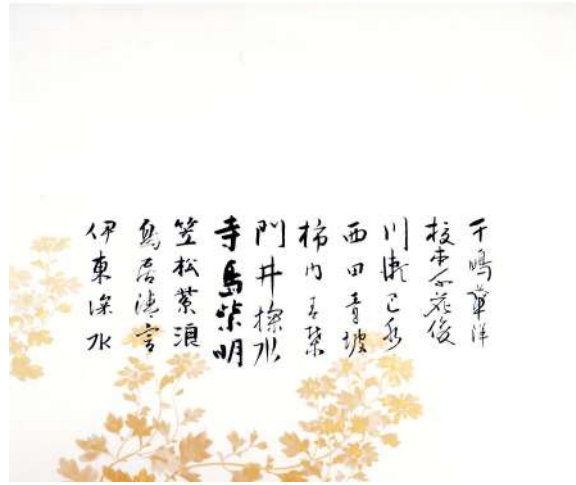 千嶋華洋
榎本千花俊
川瀬巴水
西田青坡
柿内青葉
門井掬水
寺島紫明
笠松紫浪
鳥居清言
伊東深水